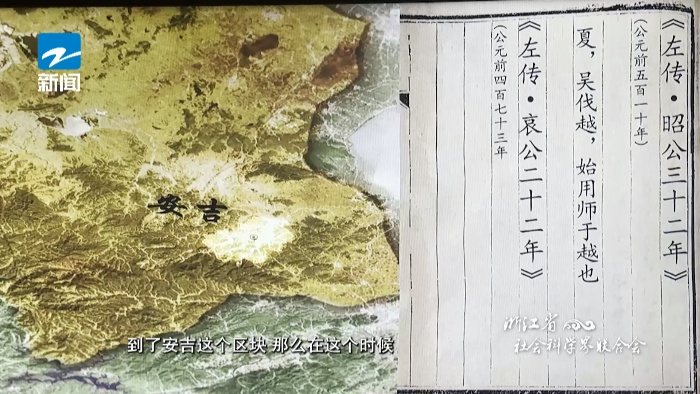 新闻
安吉
到了安吉这个区块 那么在这个时候
《左传·昭公三十二年》
(公元前五百一十年)
夏，吴伐越，始用师于越也
《左传·哀公二十二年》
(公元前四百七十三年
浙江省
社会科学界联合会